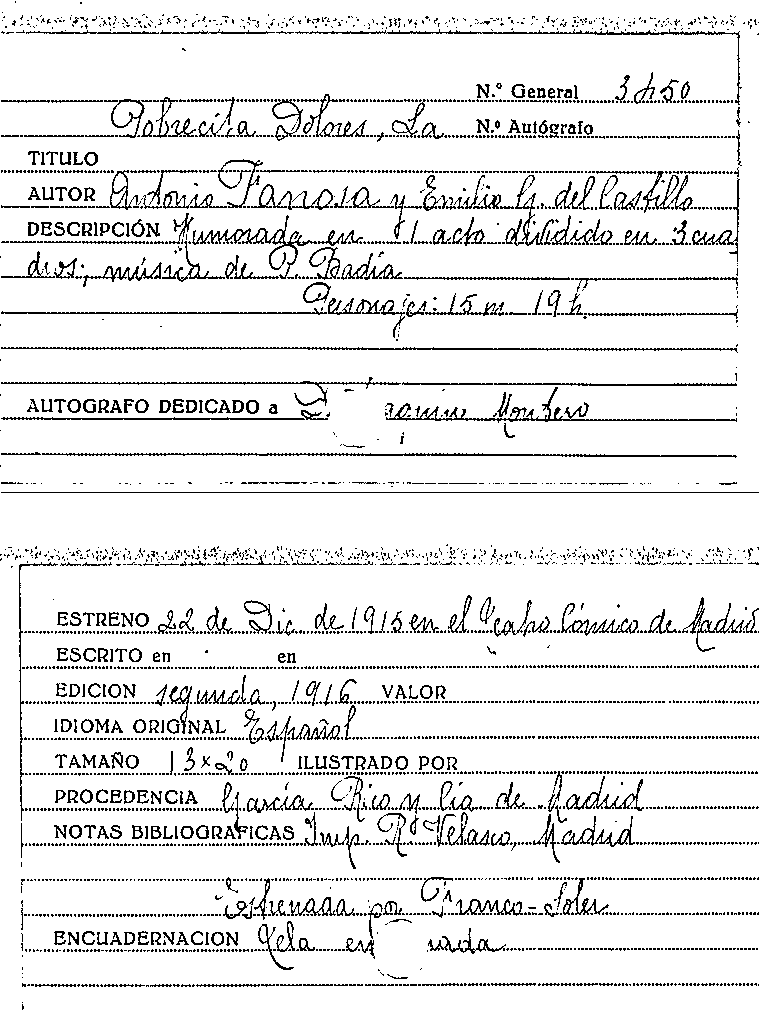 N.º General 3450
Pobrecita Dolores, La N.º Autógrafo
TITULO
AUTOR Antonio Fanosa y Emilio G. del Castillo
DESCRIPCIÓN Humorada en 1 acto dividido en 3 cua
dros; música de P. Badía
Personajes: 15 m. 19 h.
AUTOGRAFO DEDICADO a aquin Montero
ESTRENO 22 de Dic. de 1915 en el Teatro Cómico de Madrid
ESCRITO en en
EDICION segunda, 1916 VALOR
IDIOMA ORIGINAL Español
TAMAÑO 13 x 20 ILUSTRADO POR
PROCEDENCIA García Rico y Cía de Madrid
NOTAS BIBLIOGRAFICAS Imp. R. Velasco, Madrid
Estrenada por Franco-Soler
ENCUADERNACION Tela en